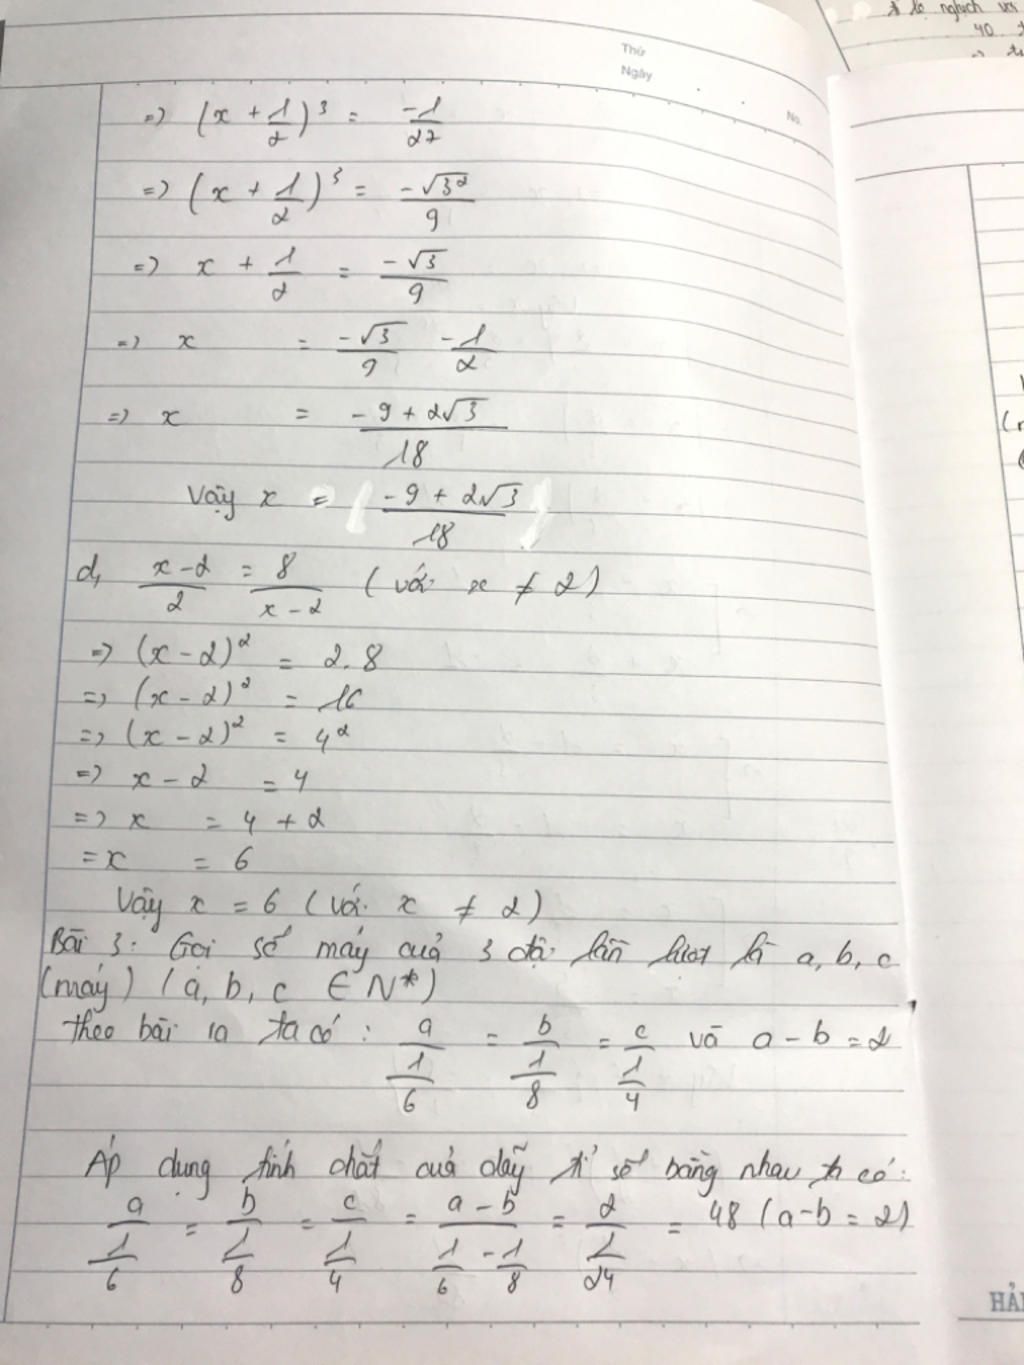 Thứ
Ngày
No.
tỉ lệ nghịch với
40
=> (x + 1/2)³ = -1/27
=> (x + 1/2)³ = -√3²/9
=> x + 1/2 = -√3/9
=> x = -√3/9 - 1/2
=> x = -9 + 2√3/18
Vậy x = -9 + 2√3/18
d, x-2/2 = 8/x-2 (với x ≠ 2)
=> (x-2)² = 2.8
=> (x-2)² = 16
=> (x-2)² = 4²
=> x-2 = 4
=> x = 4 + 2
= x = 6
Vậy x = 6 (với x ≠ 2)
Bài 3: Gọi số máy của 3 đội lần lượt là a, b, c
(máy) (a, b, c ∈ N*)
theo bài ra ta có: a/(1/6) = b/(1/8) = c/(1/4) và a - b = 2
Áp dụng tính chất của dãy tỉ số bằng nhau ta có:
a/(1/6) = b/(1/8) = c/(1/4) = a-b/(1/6 - 1/8) = 2/(1/24) = 48 (a-b = 2)
HẢI